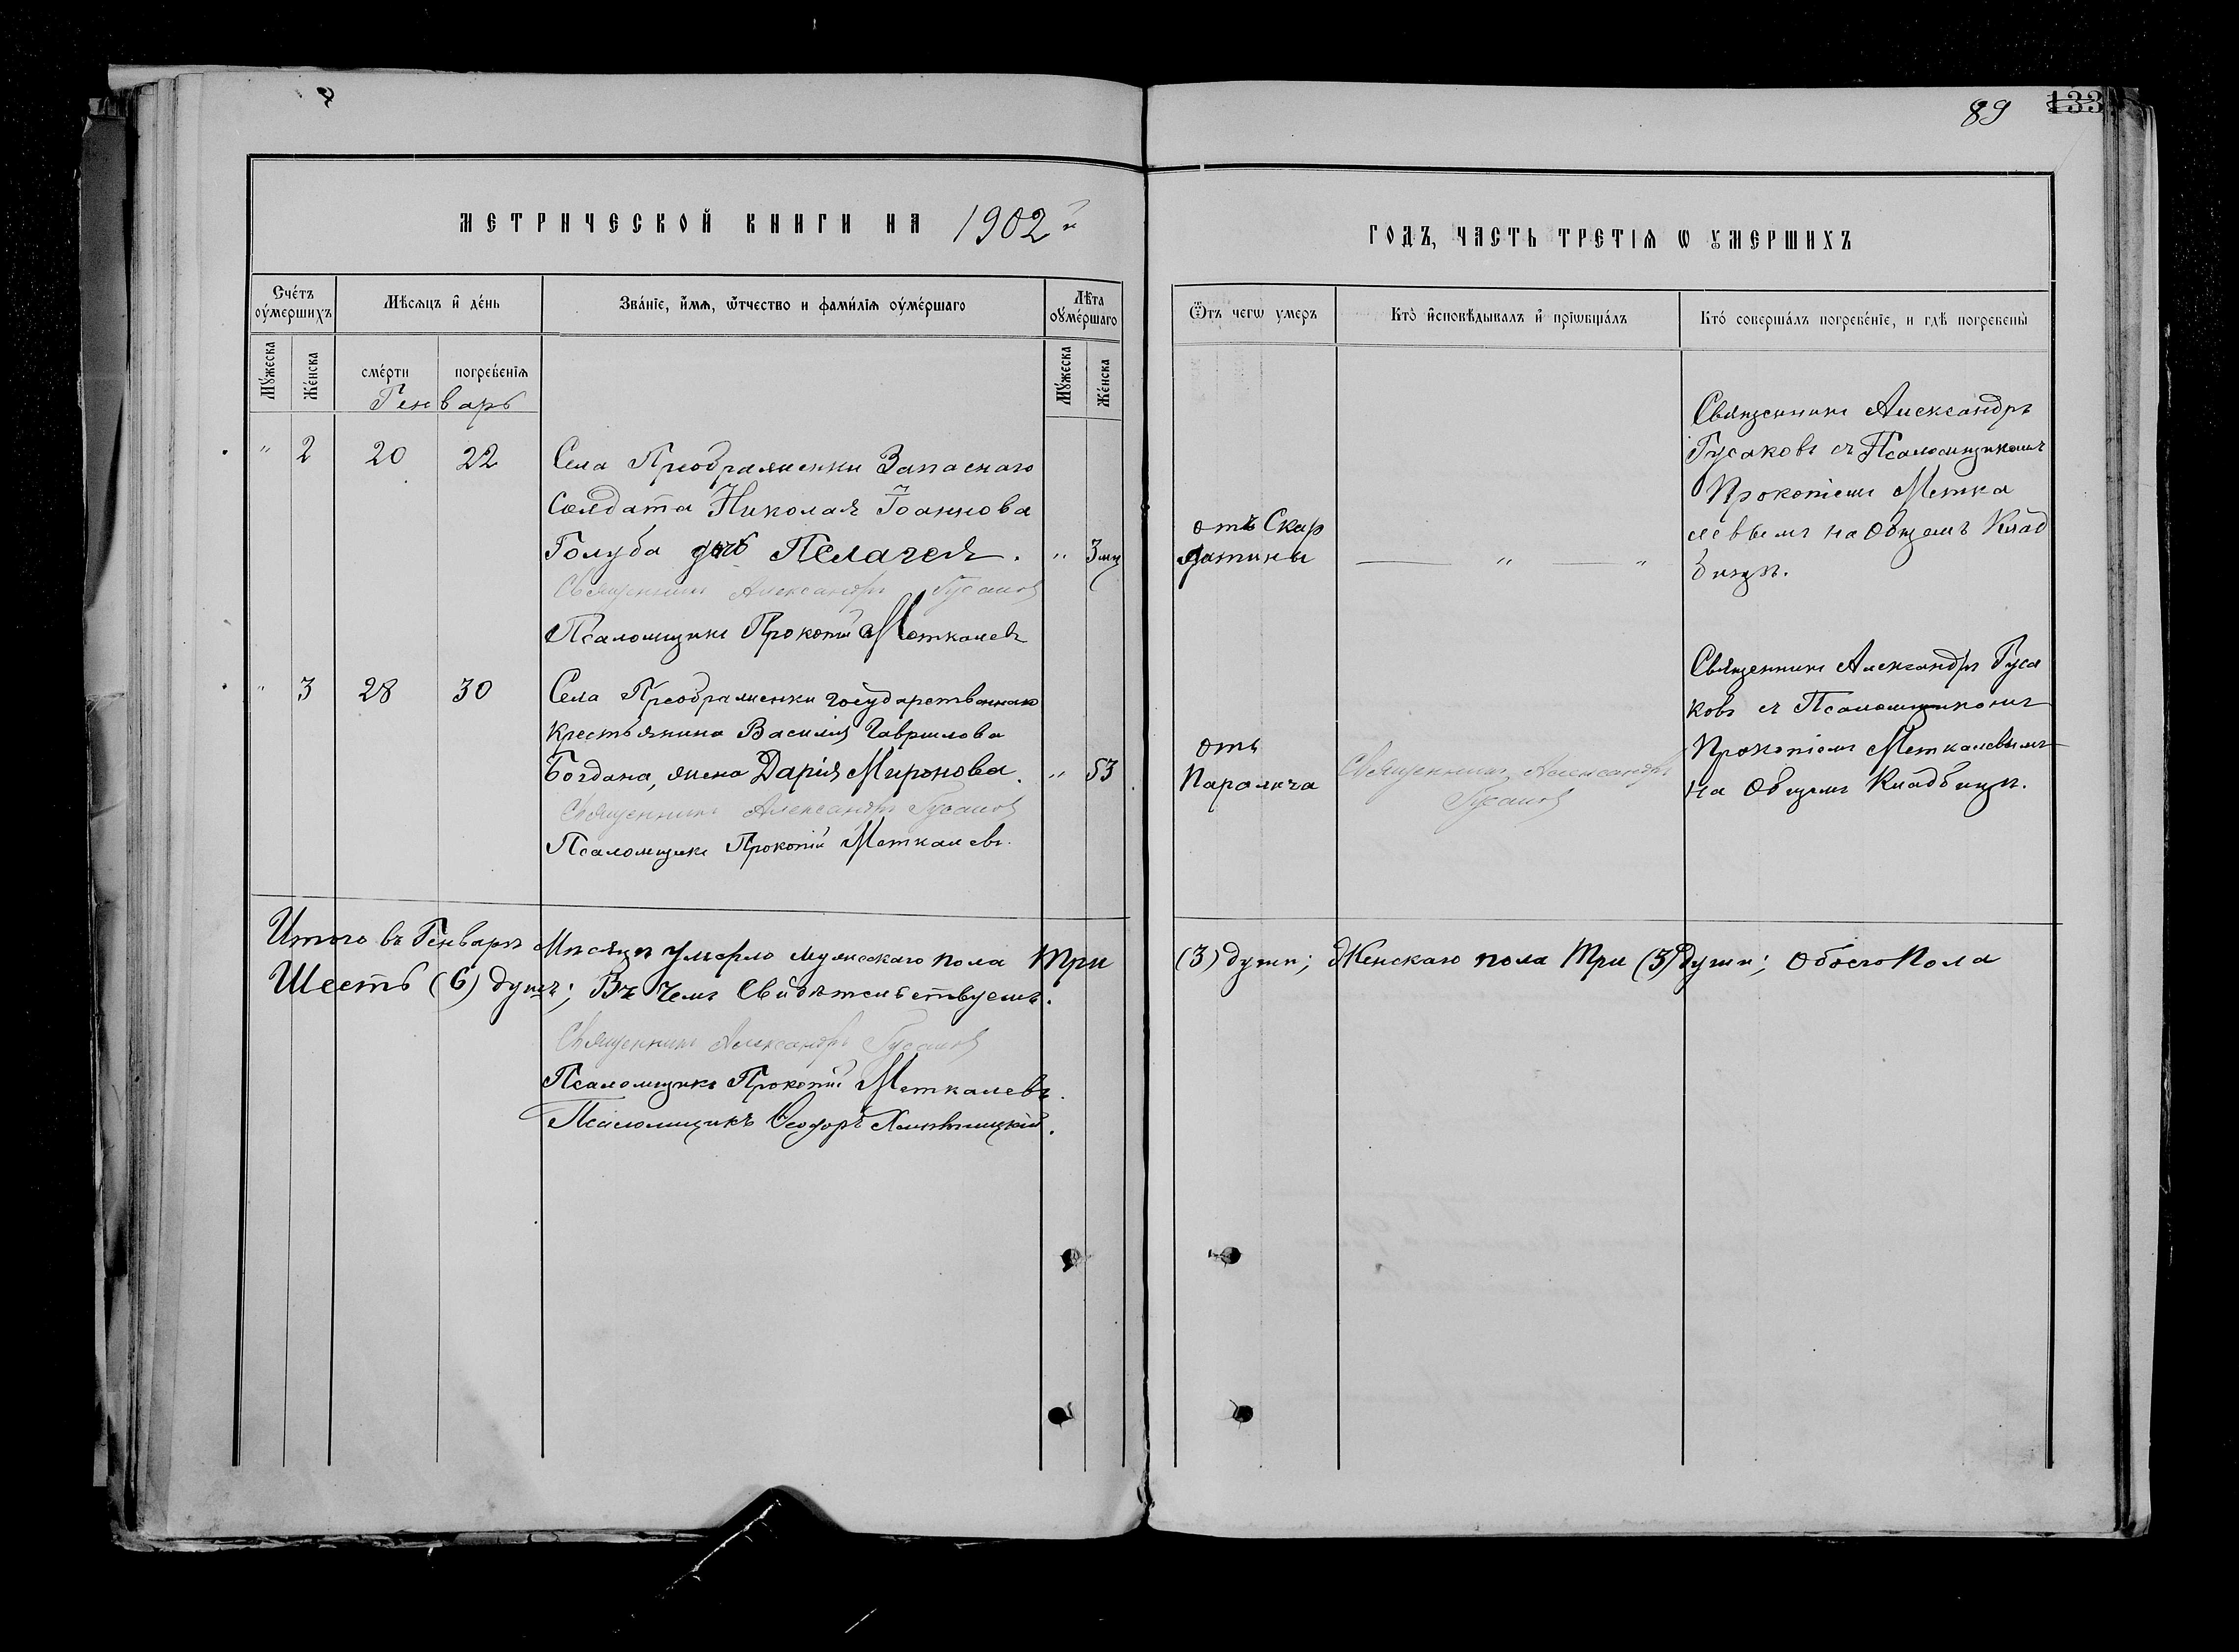 89 133
МЕТРИЧЕСКОЙ КНИГИ НА 1902й
ГОДЪ, ЧАСТЬ ТРЕТІѦ Ѡ ОУМЕРШИХЪ
Сче́тъ оу́мершихъ
Мѣсѧцъ и де́нь
Зва́ніе, и́мѧ, ѿтчество и фами́ліѧ оуме́ршаго
Лѣта оуме́ршаго
Ѿтъ чегѡ умеръ
Кто̀ исповѣдывалъ и прїѡбща́лъ
Кто́ соверша́лъ погребе́ніе, и гдѣ погребены̀
Му́жеска
Же́нска
сме́рти
погребе́нїѧ
Му́жеска
Же́нска
Генварь
" 2 20 22
Села Преображенки Запаснаго
Солдата Николая Іоаннова
Голуба дочь Пелагея. " 3 мц
Священникъ Александръ Гусаковъ
Псаломщикъ Прокопій Меткалевъ
отъ Скар
латины
— " — "
Священникъ Александръ
Гусаковъ съ Псаломщикомъ
Прокопіемъ Метка
левымъ на Общемъ Клад
бищѣ.
" 3 28 30
Села Преображенки государственнаго
Крестьянина Василія Гаврилова
Богдана, жена Дарія Миронова. " 53
Священникъ Александръ Гусаковъ
Псаломщикъ Прокопій Меткалевъ.
отъ
Паралича
Священникъ Александръ
Гусаковъ
Священникъ Александръ Гуса
ковъ съ Псаломщикомъ
Прокопіемъ Меткалевымъ
на Общемъ Кладбищѣ.
Итого въ Генварѣ Мѣсяцѣ Умерло мужескаго пола Три (3) души; Женскаго пола Три (3) души; Обоего Пола
Шесть (6) душъ; Въ Чемъ Свидѣтельствуемъ.
Священникъ Александръ Гусаковъ
Псаломщикъ Прокопій Меткалевъ.
Псаломщикъ Ѳеодоръ